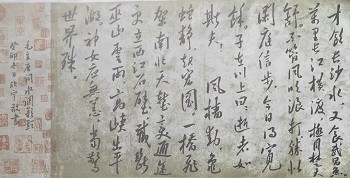 才饮长沙水又食武昌鱼
万里长江横渡极目楚天
舒不管风吹浪打胜似
闲庭信步今日得宽
馀子在川上曰逝者如
斯夫 风樯动龟
蛇静起宏图一桥飞
架南北天堑变通途
更立西江石壁截断
巫山云雨高峡出平
湖神女应无恙当惊
世界殊
毛主席词水调歌头
癸卯